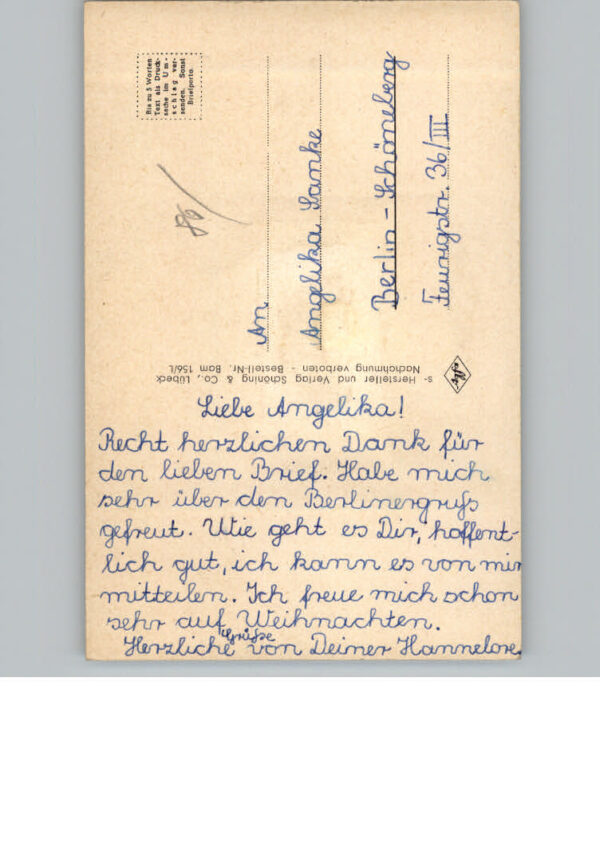 Bis zu 5 Worten
Text als Druck-
sache im Um-
schlag ver-
senden. Sonst
Briefporto
80
An
Angelika Lanke
Berlin - Schöneberg
Feurigstr. 36/III
s- Hersteller und Verlag Schöning & Co., Lübeck
Nachahmung verboten - Bestell-Nr. Bam 156/L
Liebe Angelika!
Recht herzlichen Dank für
den lieben Brief. Habe mich
sehr über den Berlinergruß
gefreut. Wie geht es Dir, hoffent-
lich gut, ich kann es von mir
mitteilen. Ich freue mich schon
sehr auf Weihnachten.
Herzliche Grüße von Deiner Hannelore